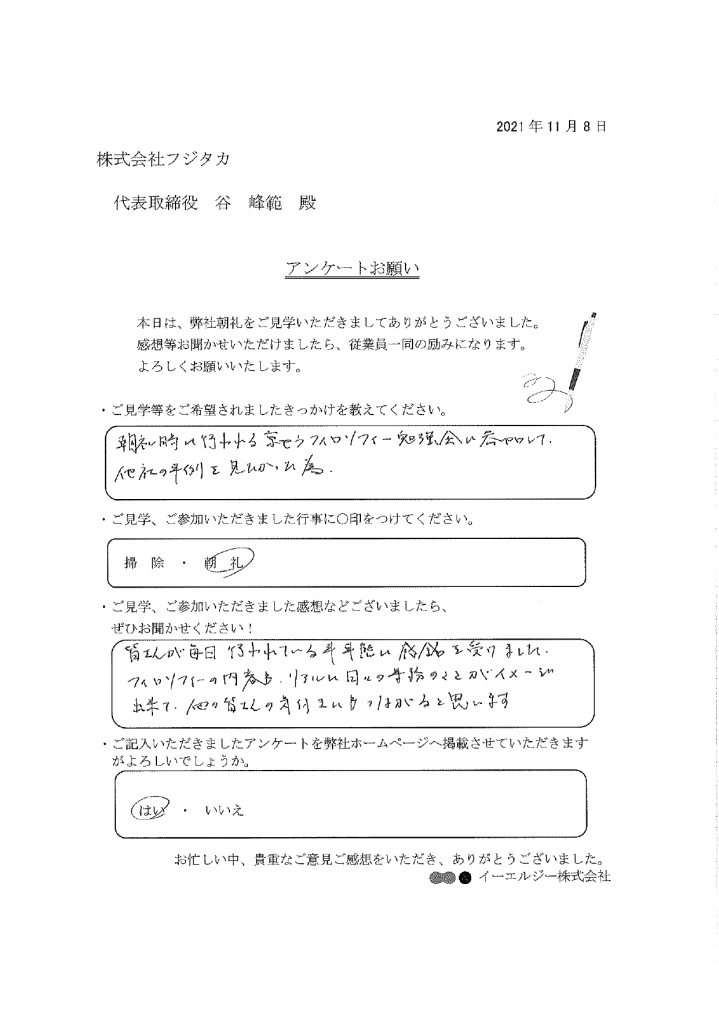 2021年11月8日
株式会社フジタカ
代表取締役 谷 峰範 殿
アンケートお願い
本日は、弊社朝礼をご見学いただきましてありがとうございました。
感想等お聞かせいただけましたら、従業員一同の励みになります。
よろしくお願いいたします。
・ご見学等をご希望されましたきっかけを教えてください。
朝礼時に行われる京セラフィロソフィー勉強会に参加して、
他社の事例を見たかった為.
・ご見学、ご参加いただきました行事に〇印をつけてください。
掃 除 ・ 朝 礼
・ご見学、ご参加いただきました感想などございましたら、
ぜひお聞かせください！
皆さんが毎日行われている事 に感銘を受けました.
フィロソフィーの内容も、リアルに日々の業務のことがイメージ
出来て、他の皆さんの気付きにもつながると思います
・ご記入いただきましたアンケートを弊社ホームページへ掲載させていただきます
がよろしいでしょうか。
はい ・ いいえ
お忙しい中、貴重なご意見ご感想をいただき、ありがとうございました。
イーエルジー株式会社